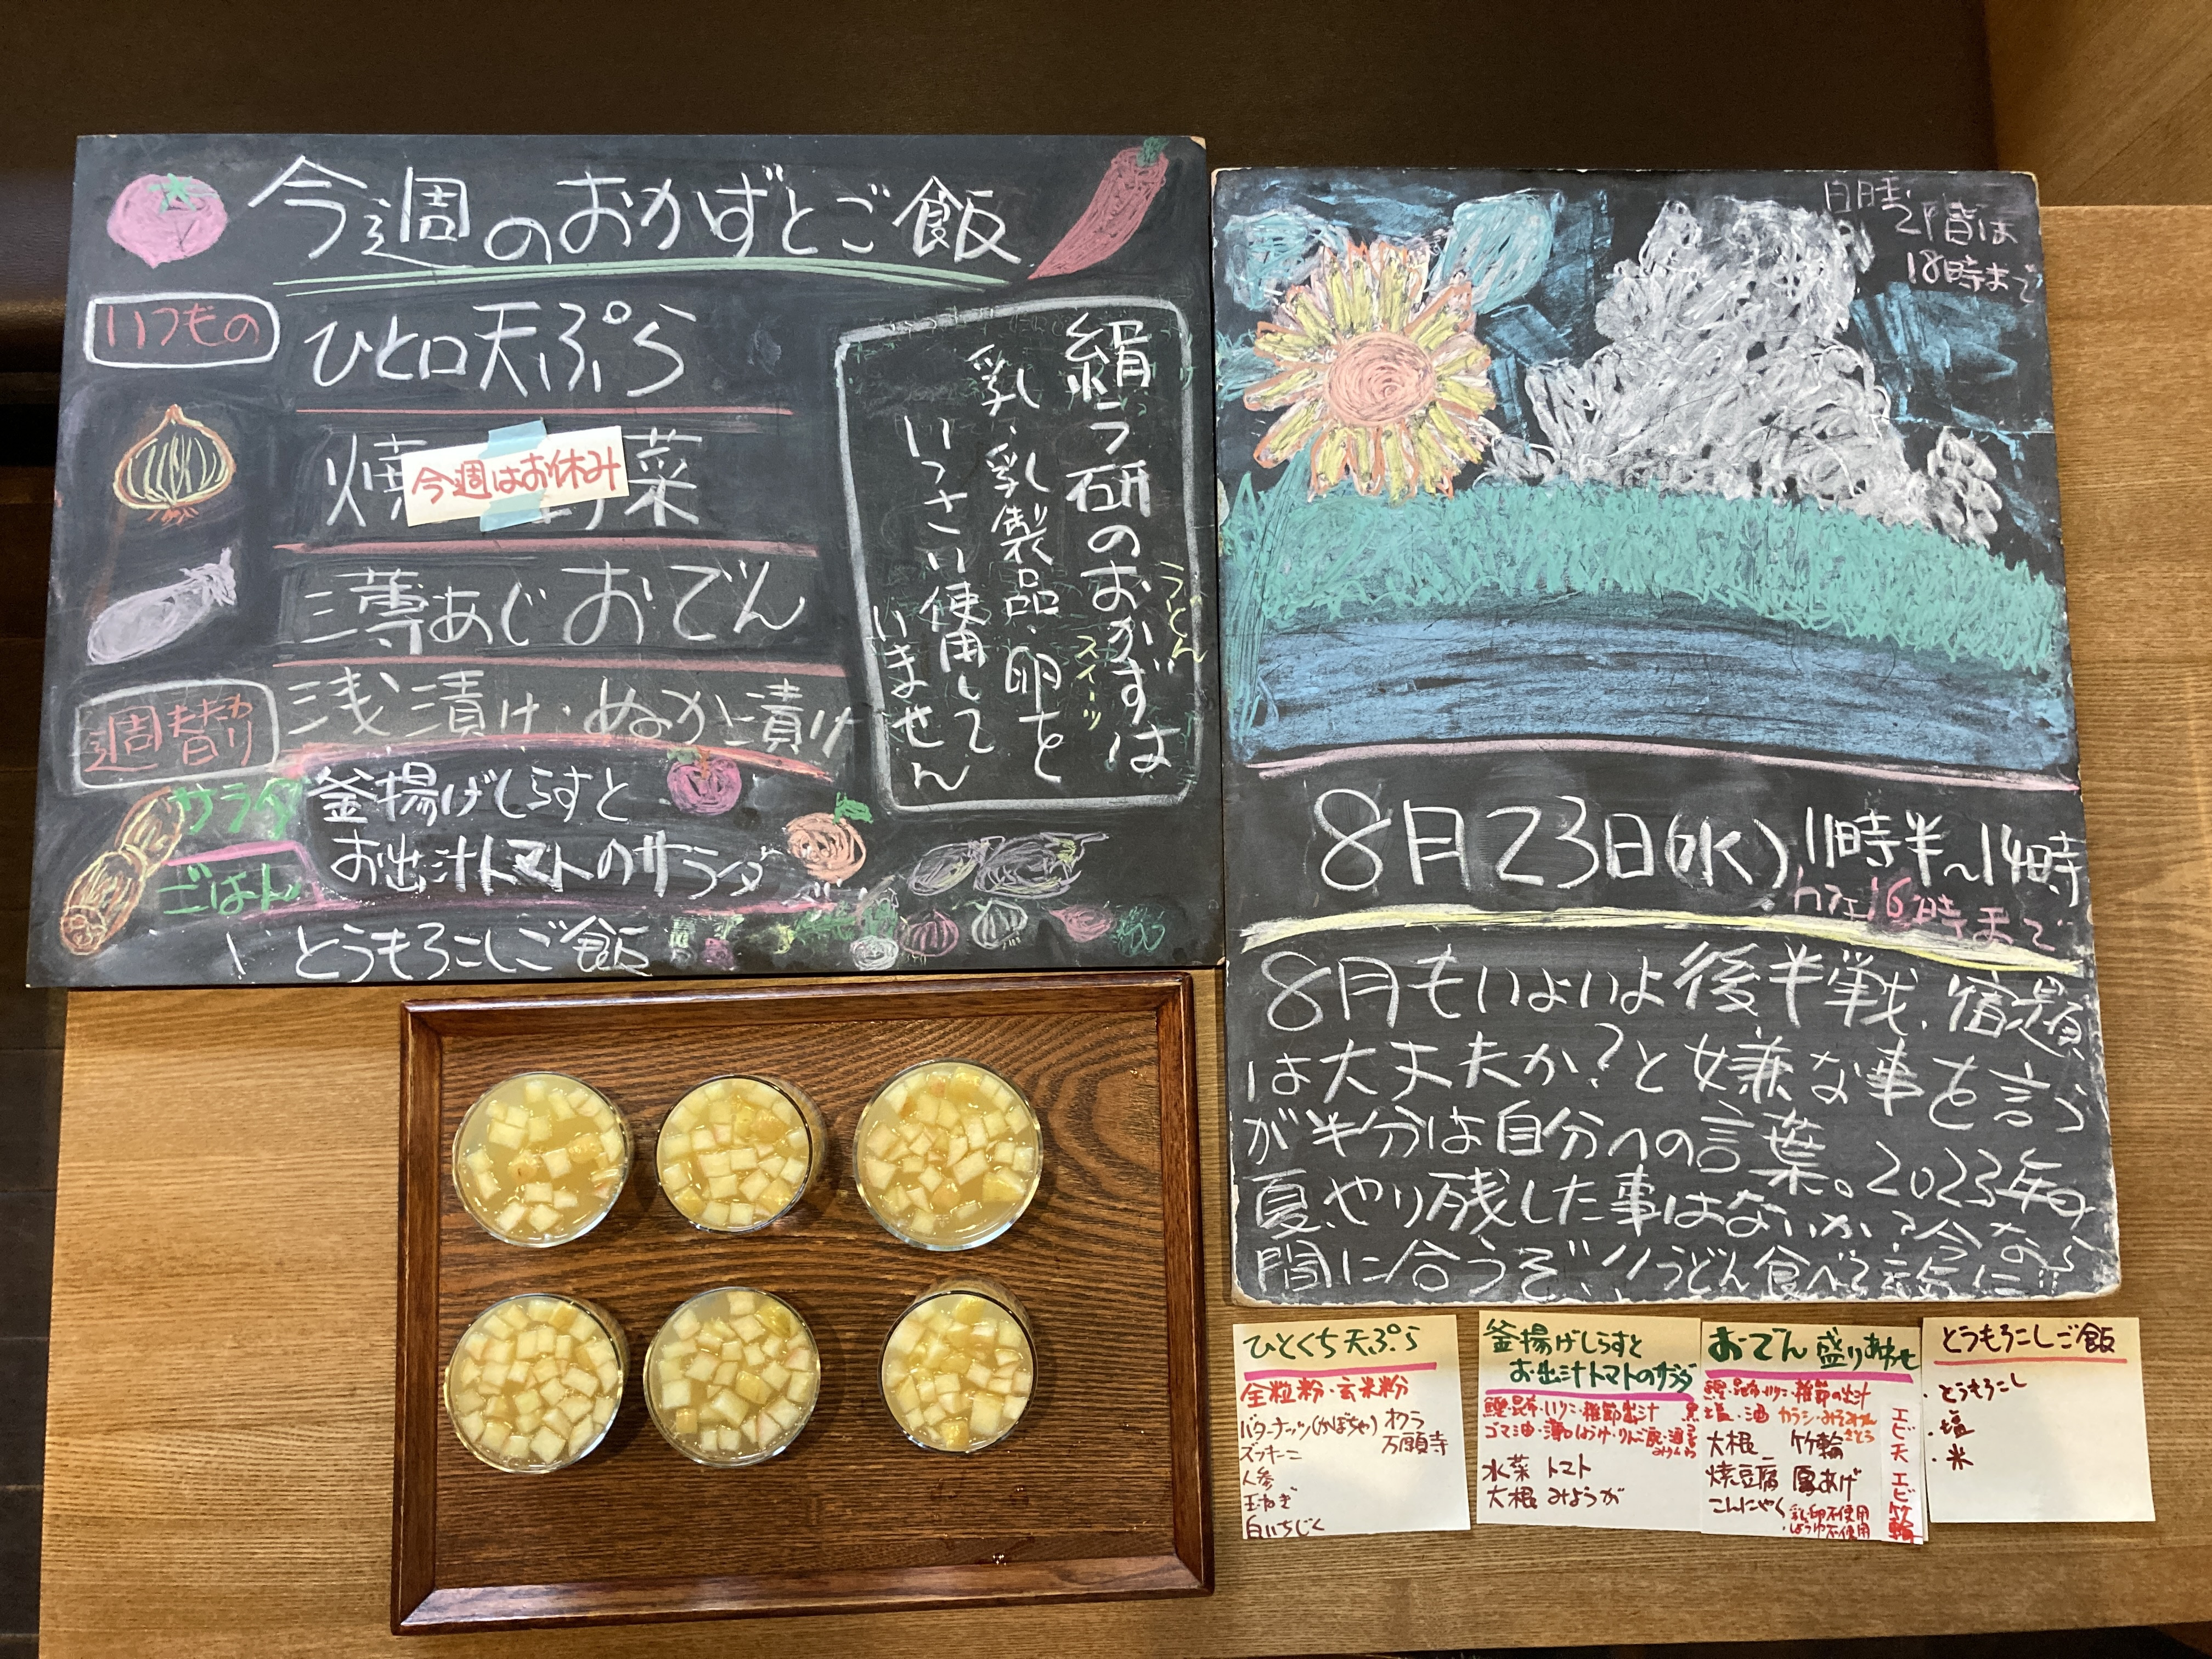 今週のおかずとご飯
いつもの
ひと口天ぷら
焼 菜
今週はお休み
三尊あじおでん
浅漬け・ぬか漬け
週替わり
サラダ
釜揚げしらすと
お出汁トマトのサラダ
ごはん
とうもろこしご飯
絹う研のおかずは
うどん
スイーツ
乳・乳製品・卵を
いっさい使用して
いません
2階は
18時まで
8月23日(水)11時半~14時
カフェ16時まで
8月もいよいよ後半戦、宿題
は大丈夫か?と嫌な事を言う
が半分は自分への言葉。2023年の
夏、やり残した事はないか?今なら
間に合うぞ、うどん食べて
ひとくち天ぷら
全粒粉・玄米粉
バターナッツ(かぼちゃ) オクラ
ズッキーニ 万願寺
人参
玉ねぎ
白いちじく
釜揚げしらすと
お出汁トマトのサラダ
鰹・昆布・いりこ・雑節出汁
ゴマ油・薄口しょうゆ・りんご酢・酒
みりん
水菜 トマト
大根 みょうが
おでん盛りあわせ
鰹・昆布・いりこ・雑節の出汁
塩・油 カラシ・みそ・みりん
さとう
大根 竹輪
焼豆腐 厚あげ
こんにゃく
乳・卵不使用
・しょうゆ不使用
エビ天 エビ 竹輪
とうもろこしご飯
・とうもろこし
・塩
・米